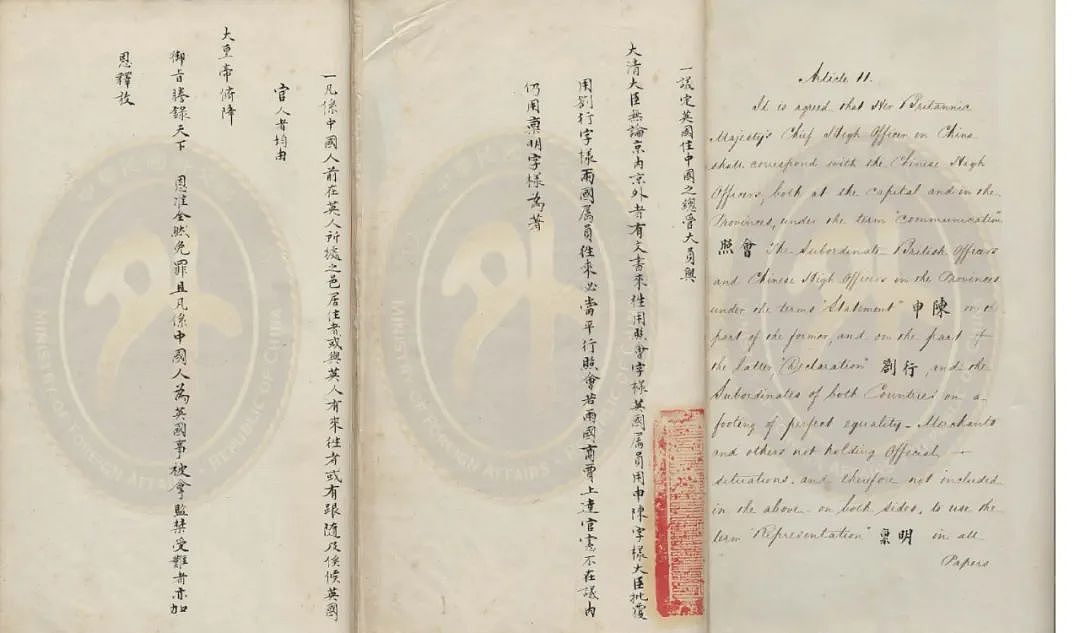 Article 11.
It is agreed that Her Britannic
Majesty's Chief High Officer in China
shall correspond with the Chinese High
Officers, both at the capital and in the
Provinces, under the term "communication"
照會 The Subordinate British Officers
and Chinese High Officers in the Provinces
under the terms "Statement" 申陳 on the
part of the former, and on the part of
the latter "Declaration" 劄行, and the
Subordinates of both Countries on a
footing of perfect equality - Merchants
and others not holding Official
situations, and therefore not included
in the above on both sides, to use the
term "Representation" 禀明 in all
Papers
一議定英國住中國之總管大員與
大清大臣無論京內京外者有文書來往用照會字樣英國屬員用申陳字樣大臣批覆
用劄行字樣兩國屬員往來必當平行照會若兩國商賈上達官憲不在議內
仍用禀明字樣為著
一凡係中國人前在英人所據之邑居住者或與英人有來往者或有跟隨及俟候英國
官人者均由
大皇帝俯降
御旨謄錄天下 恩准全然免罪且凡係中國人為英國事被拿監禁受難者亦加
恩釋放
MINISTRY OF FOREIGN AFFAIRS · REPUBLIC OF CHINA
MINISTRY OF FOREIGN AFFAIRS · REPUBLIC OF CHINA